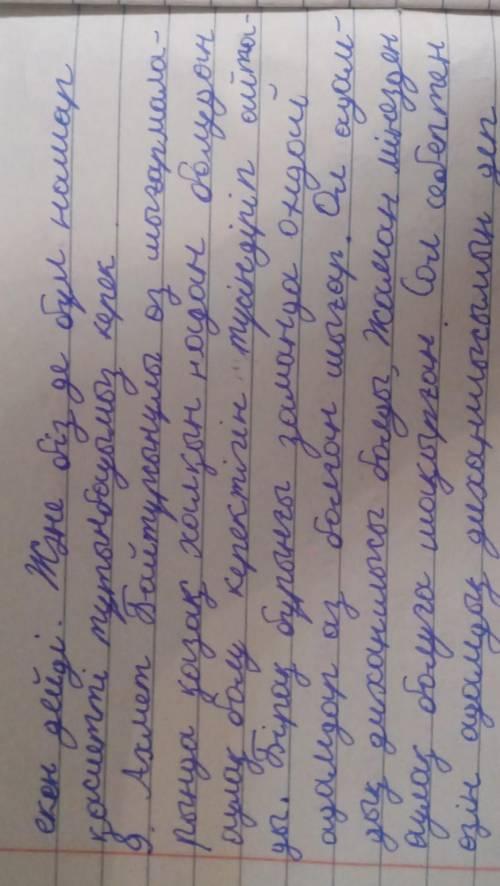 екен дейді. Және біз де бұл нашар
қасиетті тұтынбауымыз керек
9. Ахмет Байтұрсынұлы өз шығармала-
рында қазақ халқын надан болудан
аулақ болу керектігін түсіндіріп айта-
ды. Бірақ бұрынғы заманда ондай
адамдар аз болған шығар. Ол адам-
дық диханшысы болуы, жаман мінезден
аулақ болуға шақырған. Сол себептен
өзін адамдық диханшысымын деп